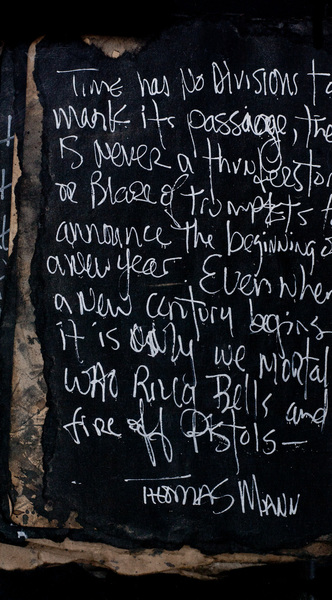 Time has No Divisions to
mark its passage, the
is Never a thunderstor
or Blare of Trumpets t
announce the beginning o
a new year Even when
a New century begins
it is only we mortal
who Ring Bells and
fire off Pistols —
THOMAS MANN